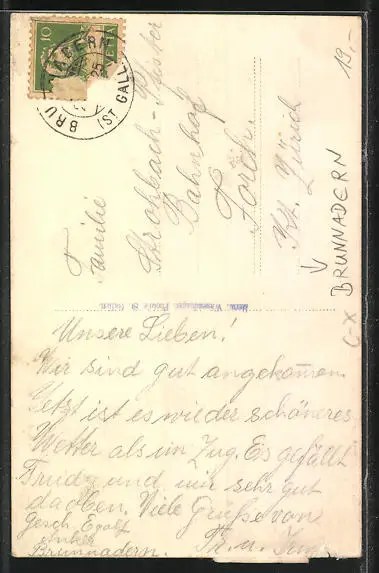 10
HELVETIA
BRUNNADERN
25
(ST. GALLEN)
19.-
Familie
Strohbach-Pfister
Bahnhof
Forch.
Kt. Zürich
↓
BRUNNADERN
C-X
Unsere Lieben!
Wir sind gut angekommen.
Jetzt ist es wieder schöneres
Wetter als im Zug. Es gefällt
Trudy und mir sehr gut
da oben. Viele Grüsse von
Gesch. Egolf
Brunnadern.